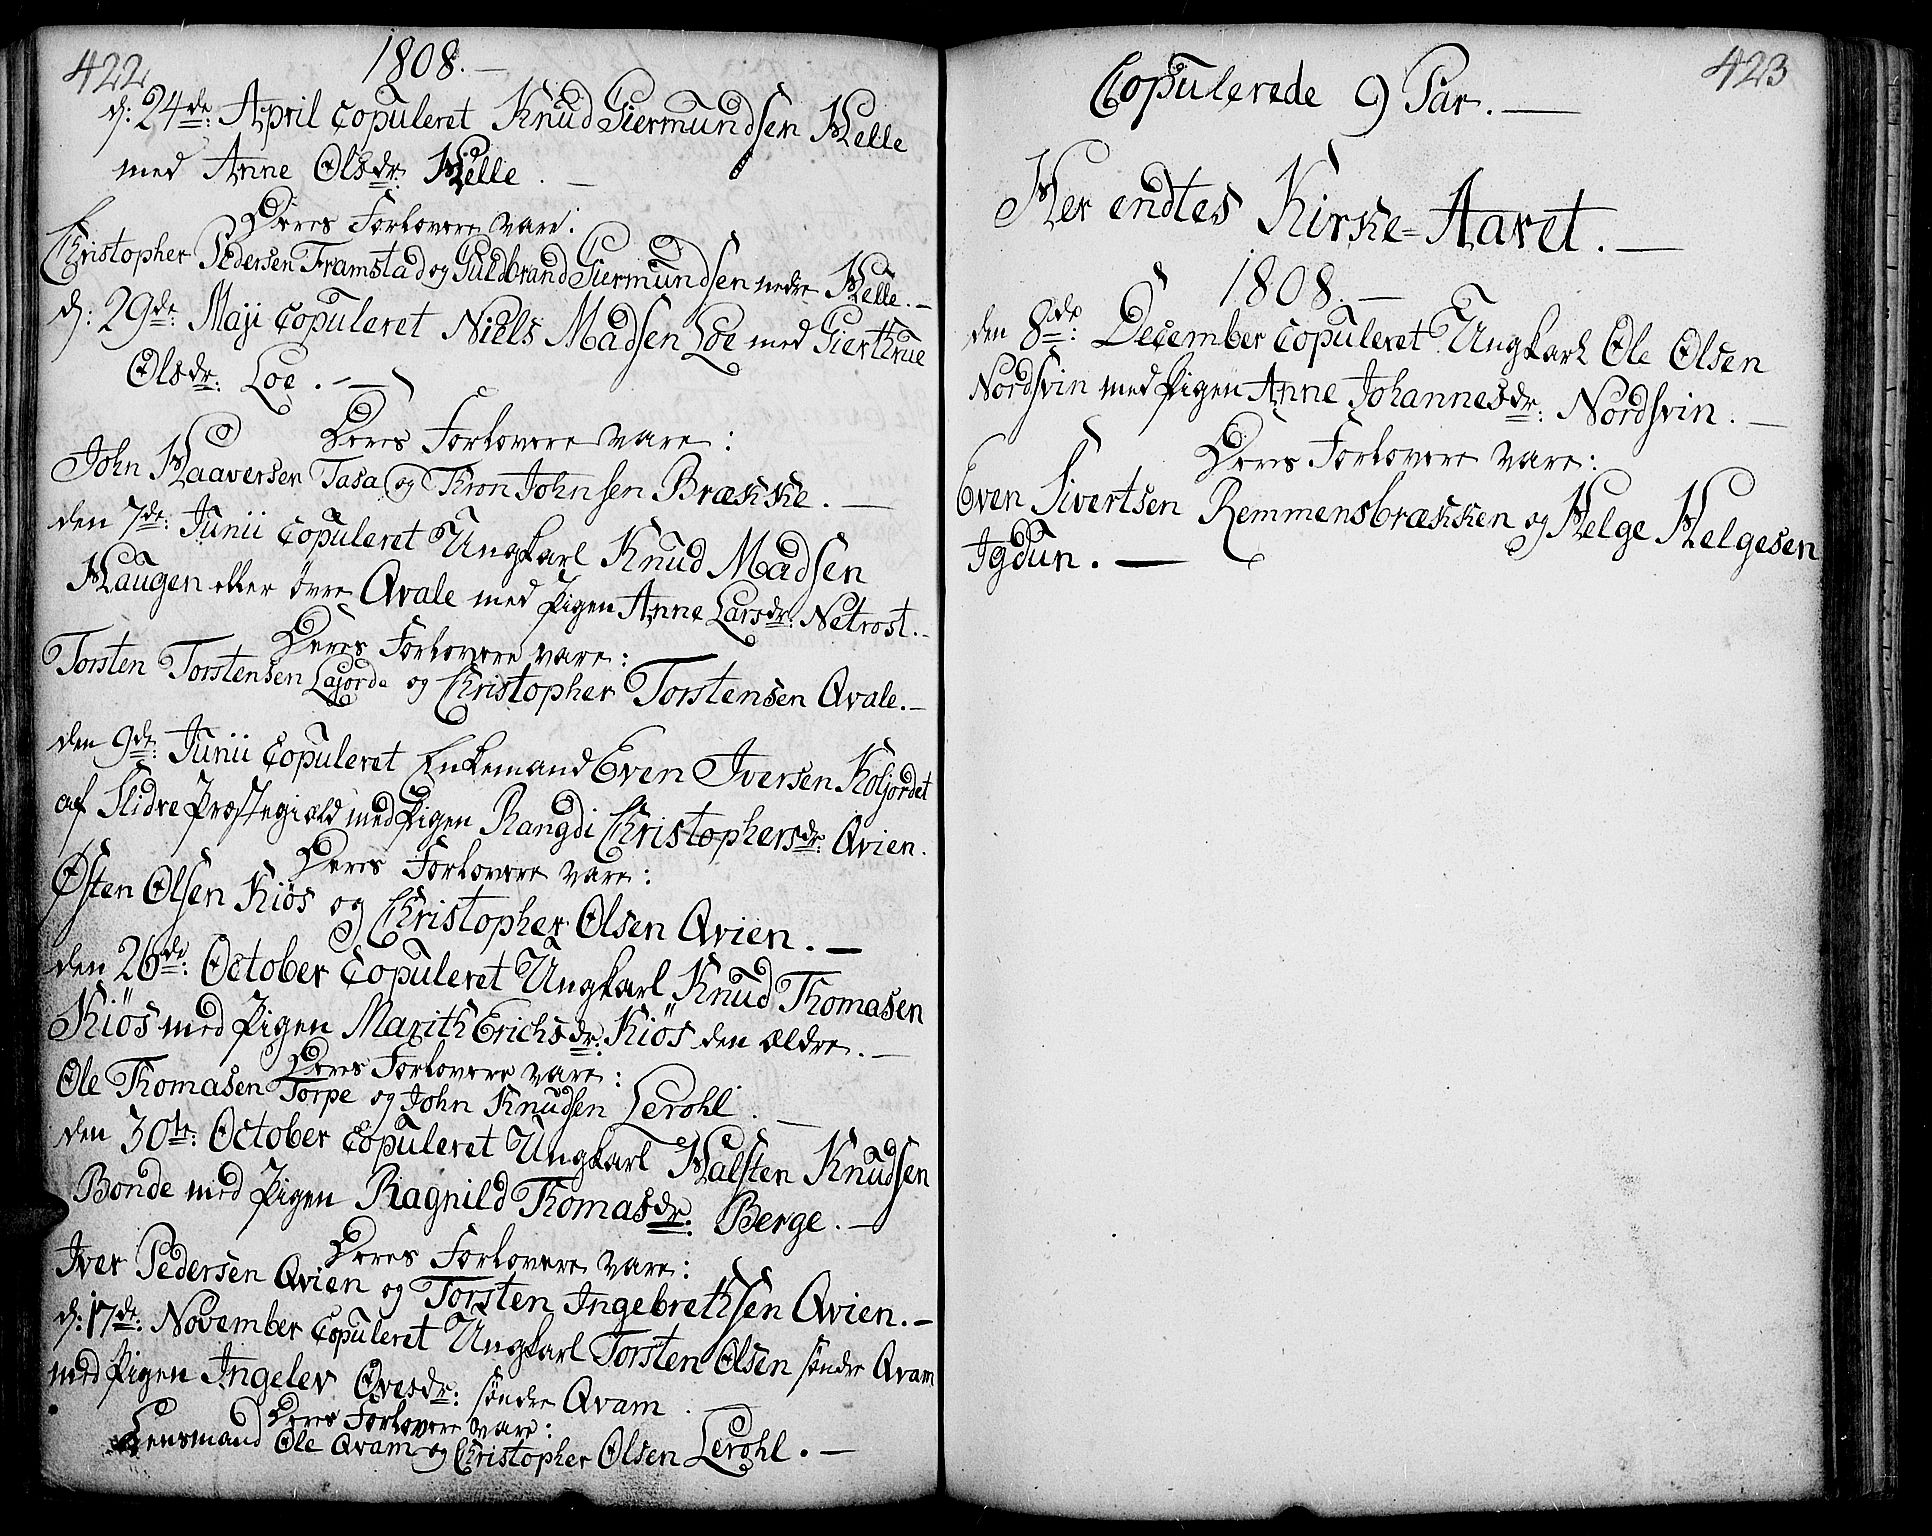 422
1808. —
d: 24de: April copuleret Knud Giermundsen Helle
med Anne Olsdr: Helle. —
Deres Forlovere vare:
Christopher Pedersen Framstad og Guldbrand Giermundsen nedre Helle. —
d: 29de: Maji copuleret Niels Madsen Loe med Gierthrue
Olsdr: Loe. —
Deres Forlovere vare:
John Haaversen Tasa og Thron Johnsen Brække. —
den 7de: Junii copuleret Ungkarl Knud Madsen
Haugen eller övre Qvale med Pigen Anne Larsdr: Netrost. —
Deres Forlovere vare:
Torsten Torstensen Lajorde og Christopher Torstensen Qvale. —
den 9de: Junii copuleret Enkemand Even Iversen Koljordet
af Slidre Præstegiæld med Pigen Rangdi Christophersdr: Qvien.
Deres Forlovere vare:
Østen Olsen Kiös og Christopher Olsen Qvien. —
den 26de: October copuleret Ungkarl Knud Thomasen
Kiös med Pigen Marith Erichsdr: Kiös den ældre. —
Deres Forlovere vare:
Ole Thomasen Torpe og John Knudsen Lerohl. —
den 30te: October copuleret Ungkarl Halsten Knudsen
Bonde med Pigen Ragnild Thomasdr: Berge. —
Deres Forlovere vare:
Iver Pedersen Qvien og Torsten Ingebrethsen Qvien. —
d: 17de: November copuleret Ungkarl Torsten Olsen söndre Qvam
med Pigen Ingelev Ovesdr: söndre Qvam.
Deres Forlovere vare:
Lensmand Ole Qvam og Christopher Olsen Lerohl. —
423
Copulerede 9 Par. —
Her endtes Kirke-Aaret. —
1808. —
den 8de: December copuleret Ungkarl Ole Olsen
Nordsvin med Pigen Anne Johannesdr: Nordsvin. —
Deres Forlovere vare:
Even Sivertsen Remmensbrækken og Helge Helgesen
Igdun. —